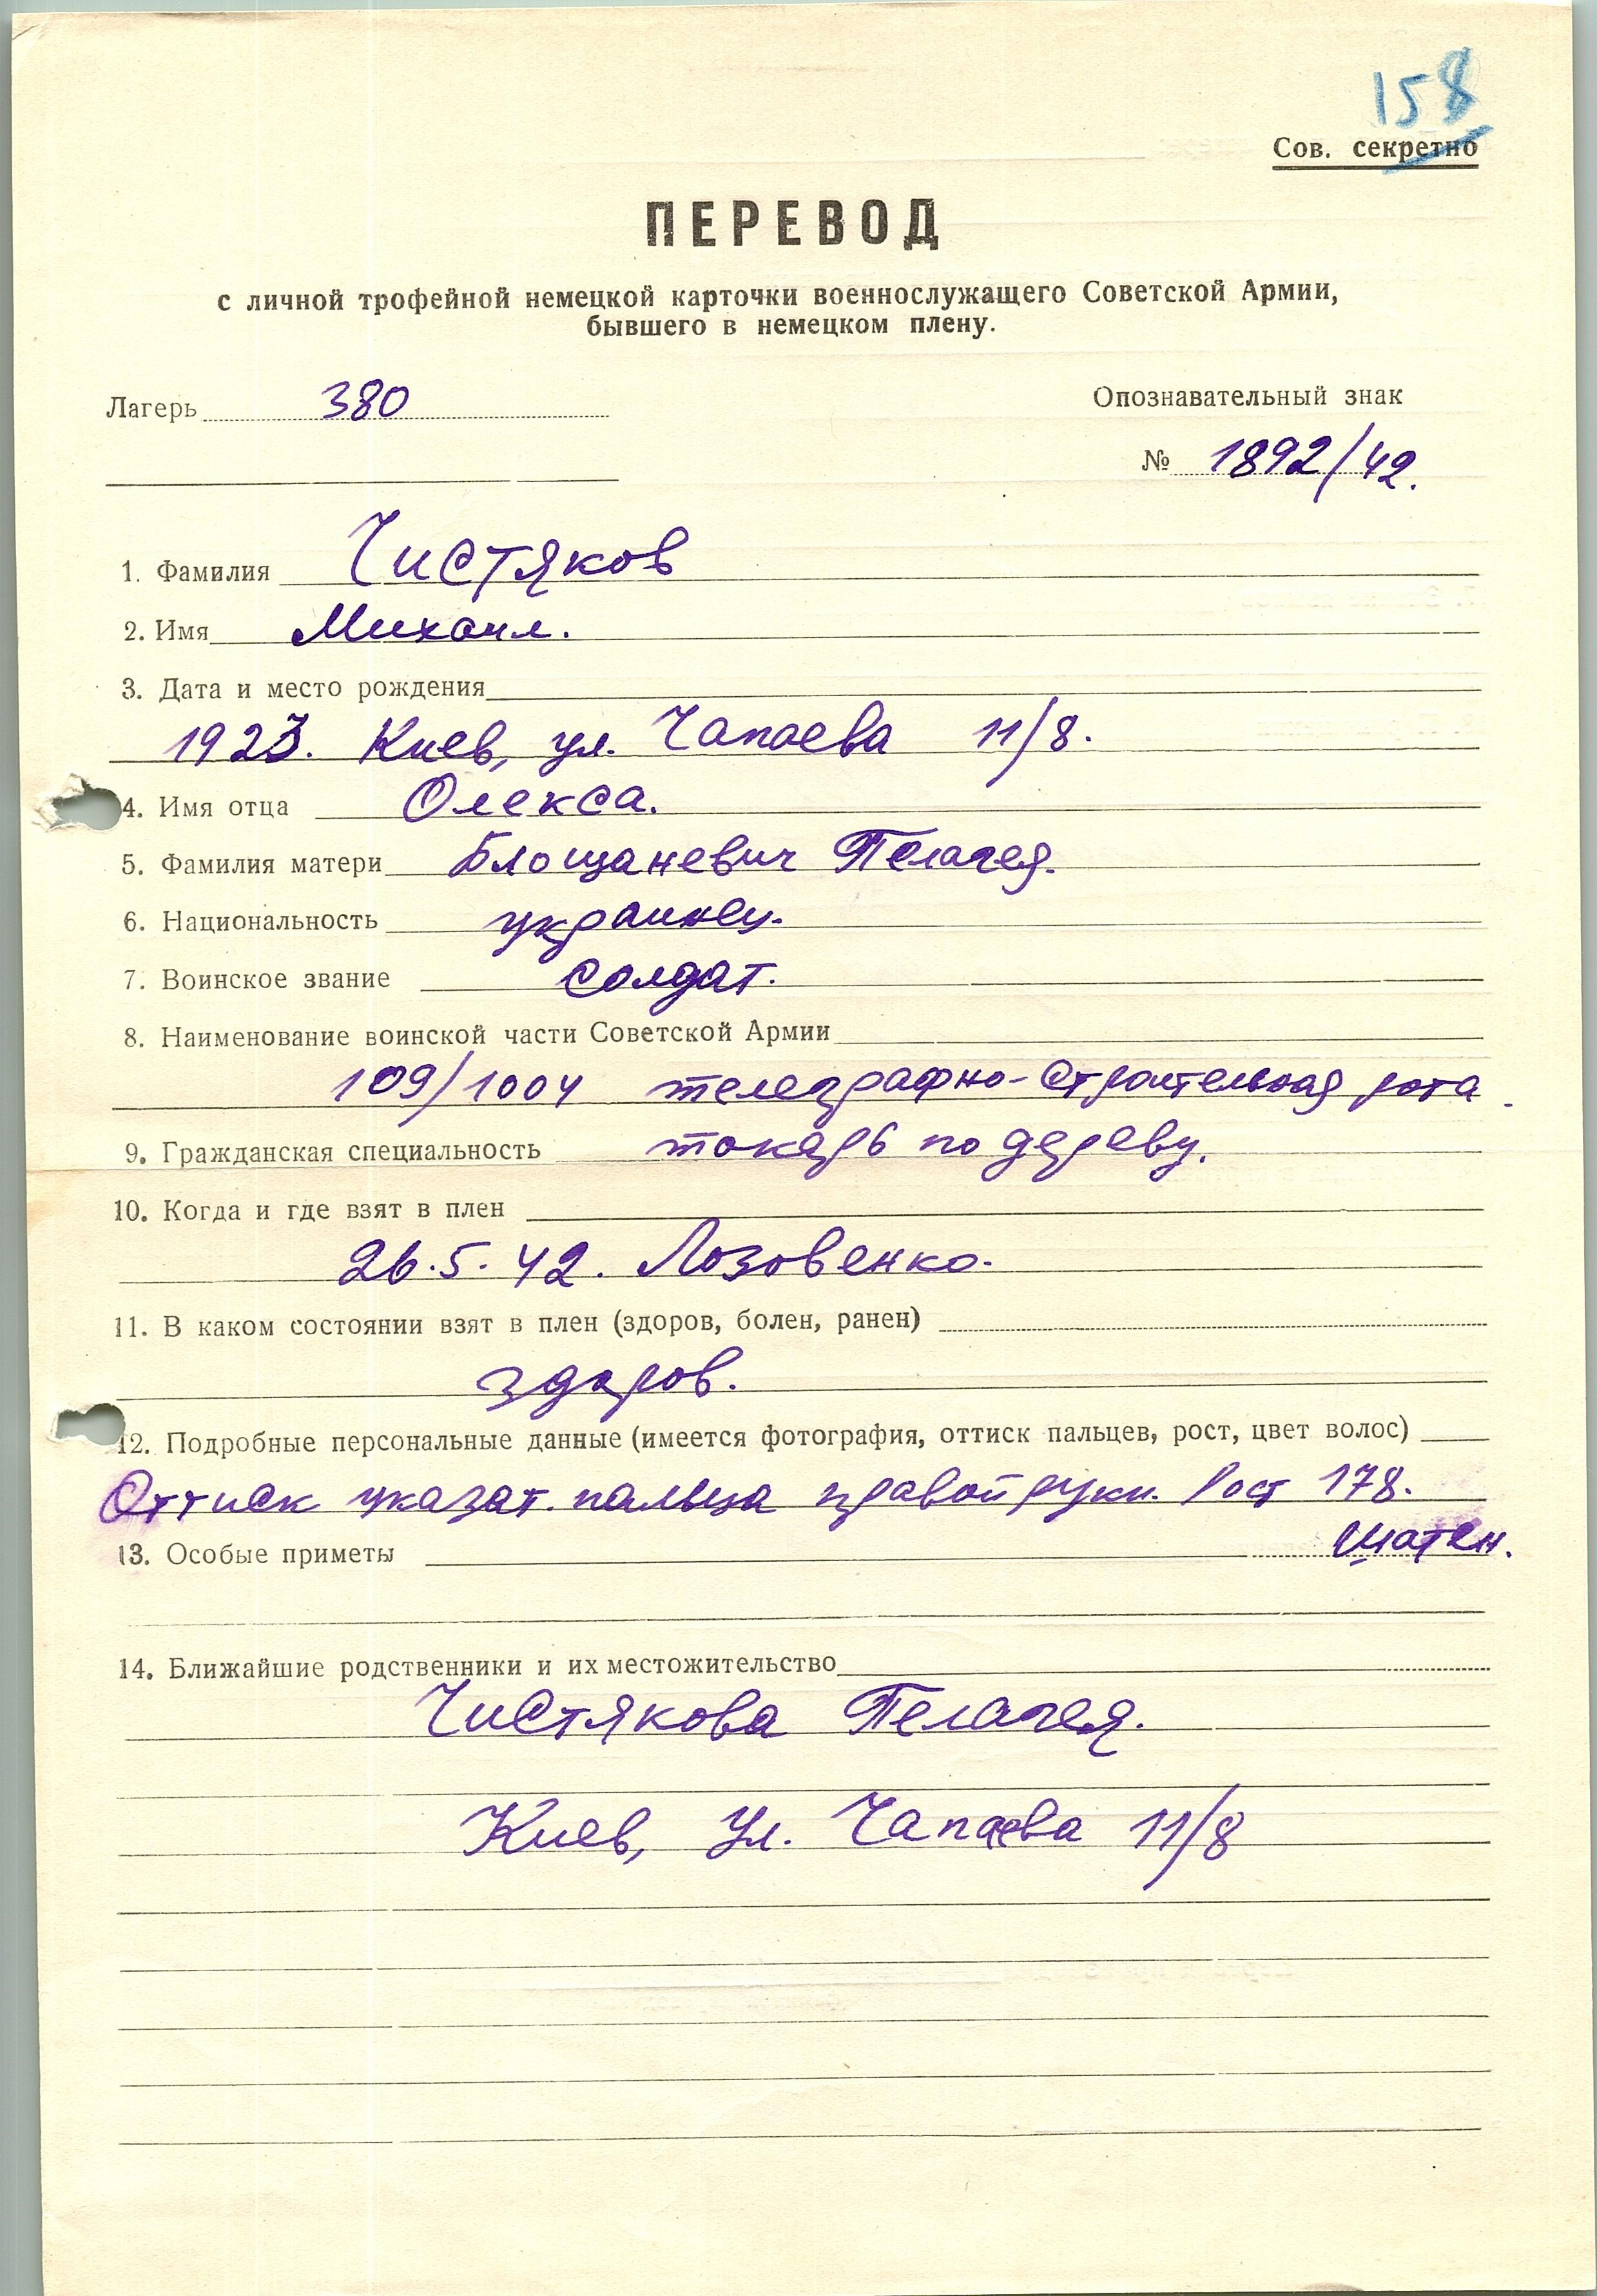 158
Сов. секретно
ПЕРЕВОД
с личной трофейной немецкой карточки военнослужащего Советской Армии,
бывшего в немецком плену.
Лагерь 380
Опознавательный знак
№ 1892/42.
1. Фамилия Чистяков
2. Имя Михаил.
3. Дата и место рождения
1923. Киев, ул. Чапаева 11/8.
4. Имя отца Олекса.
5. Фамилия матери Блощаневич Пелагея.
6. Национальность украинец.
7. Воинское звание солдат.
8. Наименование воинской части Советской Армии
109/1004 телеграфно-строительная рота
9. Гражданская специальность токарь по дереву.
10. Когда и где взят в плен
26.5.42. Лозовенко.
11. В каком состоянии взят в плен (здоров, болен, ранен)
здоров.
12. Подробные персональные данные (имеется фотография, оттиск пальцев, рост, цвет волос)
Оттиск указат. пальца правой руки. Рост 178.
шатен.
13. Особые приметы
14. Ближайшие родственники и их местожительство
Чистякова Пелагея.
Киев, ул. Чапаева 11/8